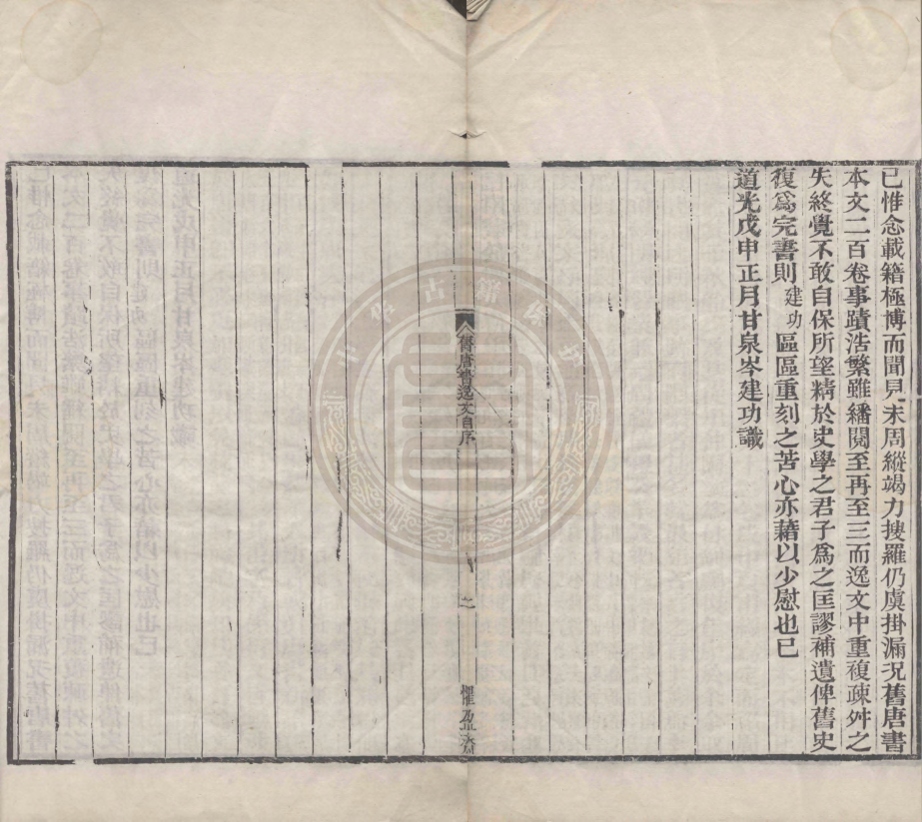 已惟念載籍極博而聞見未周縱竭力搜羅仍虞掛漏况舊唐書
本文二百卷事蹟浩繁雖繙閱至再至三而逸文中重複疎舛之
失終覺不敢自保所望精於史學之君子爲之匡謬補遺俾舊史
復爲完書則建功區區重刻之苦心亦藉以少慰也已
道光戊申正月甘泉岑建功識
舊唐書逸文自序
懼盈齋